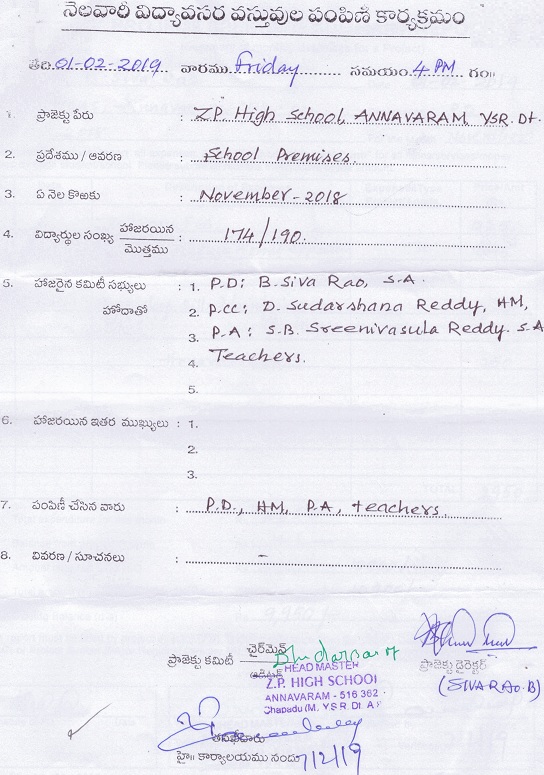 నెలవారీ విద్యావసర వస్తువుల పంపిణి కార్యక్రమం
తేది.01-02-2019.. వారము.Friday.......... సమయం.4.PM.. గం॥
1. ప్రాజెక్టు పేరు : Z.P. High School, ANNAVARAM, YSR. Dt.
2. ప్రదేశము / ఆవరణ : School Premises.
3. ఏ నెల కొఱకు : November-2018
4. విద్యార్థుల సంఖ్య హాజరయిన / మొత్తము : 174/190.
5. హాజరైన కమిటీ సభ్యులు : 1. P.D: B. Siva Rao, S.A.
హోదాతో 2. P.CC: D. Sudarshana Reddy, HM,
3. P.A: S.B. Sreenivasula Reddy. S.A
4. Teachers.
5.
6. హాజరయిన ఇతర ముఖ్యులు : 1.
2.
3.
7. పంపిణీ చేసిన వారు : P.D., HM, P.A, teachers.
8. వివరణ / సూచనలు : -
ప్రాజెక్టు కమిటీ ఛైర్‌మెన్
HEAD MASTER
Z.P. HIGH SCHOOL
ANNAVARAM - 516 362
Chapadu (M, Y S R. Dt. A.P
ప్రాజెక్టు డైరెక్టర్
(SIVA RAO.B)
తనిఖీదారు
హై॥ కార్యాలయము నందు 7/2/19